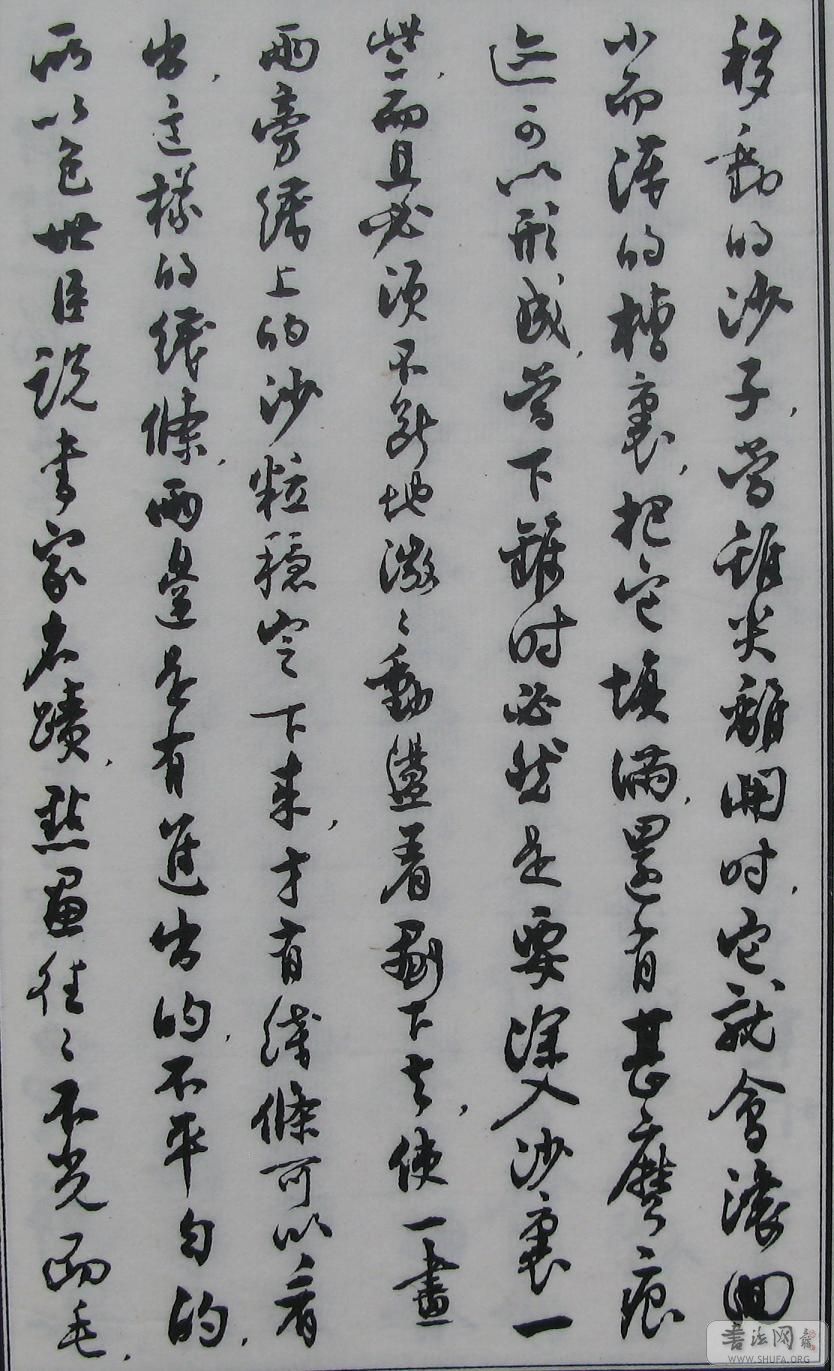 移動的沙子,當錐尖離開時,它就會滚回
小而淺的槽裏,把它填滿,還有甚麽痕
迹可以形成,當下錐時必然是要深入沙裏一
些,而且必須不斷地微々動盪着劃下去,使一畫
兩旁線上的沙粒穩定下來,才有綫條可以看
出,這樣的綫條,兩邊是有進出的,不平勻的,
所以包世臣說書家名蹟,點畫往々不光而毛,
書法网
WWW.SHUFA.ORG